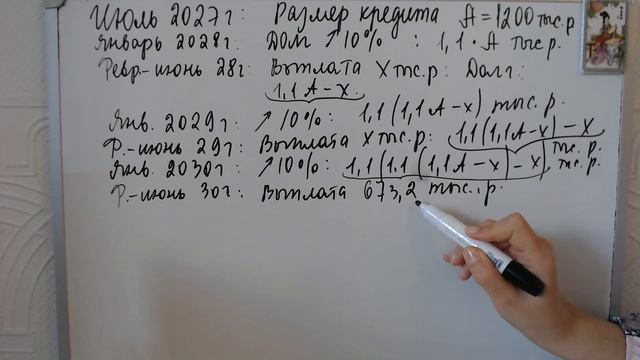 Июль 2027г: Размер кредита A = 1200 тыс р
Январь 2028г: Долг ↑ 10% : 1,1 · A тыс р.
Февр.-июнь 28г: Выплата X тыс. р: Долг:
1,1A - X.
Янв. 2029г: ↗ 10%: 1,1 (1,1A - x) тыс. р.
Ф.-июнь 29г: Выплата X тыс. р: 1,1(1,1A - x) - X
тыс. р.
Янв. 2030г: ↗ 10%: 1,1(1,1(1,1A - x) - x), тыс. р.
Ф.-июнь 30г: Выплата 673,2 тыс. р.